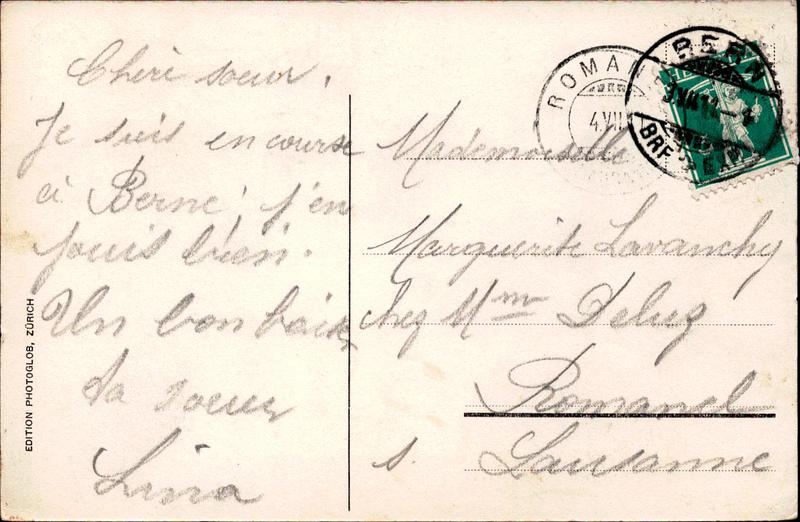 Chère sœur.
Je suis en course
à Berne; j'en
jouis bien.
Un bon baiser
ta sœur
Lina
EDITION PHOTOGLOB, ZÜRICH
ROMAN
4.VII
BERN
Mademoiselle
Marguerite Lavanchy
chez Mme Deluz
Romanel
s. Lausanne